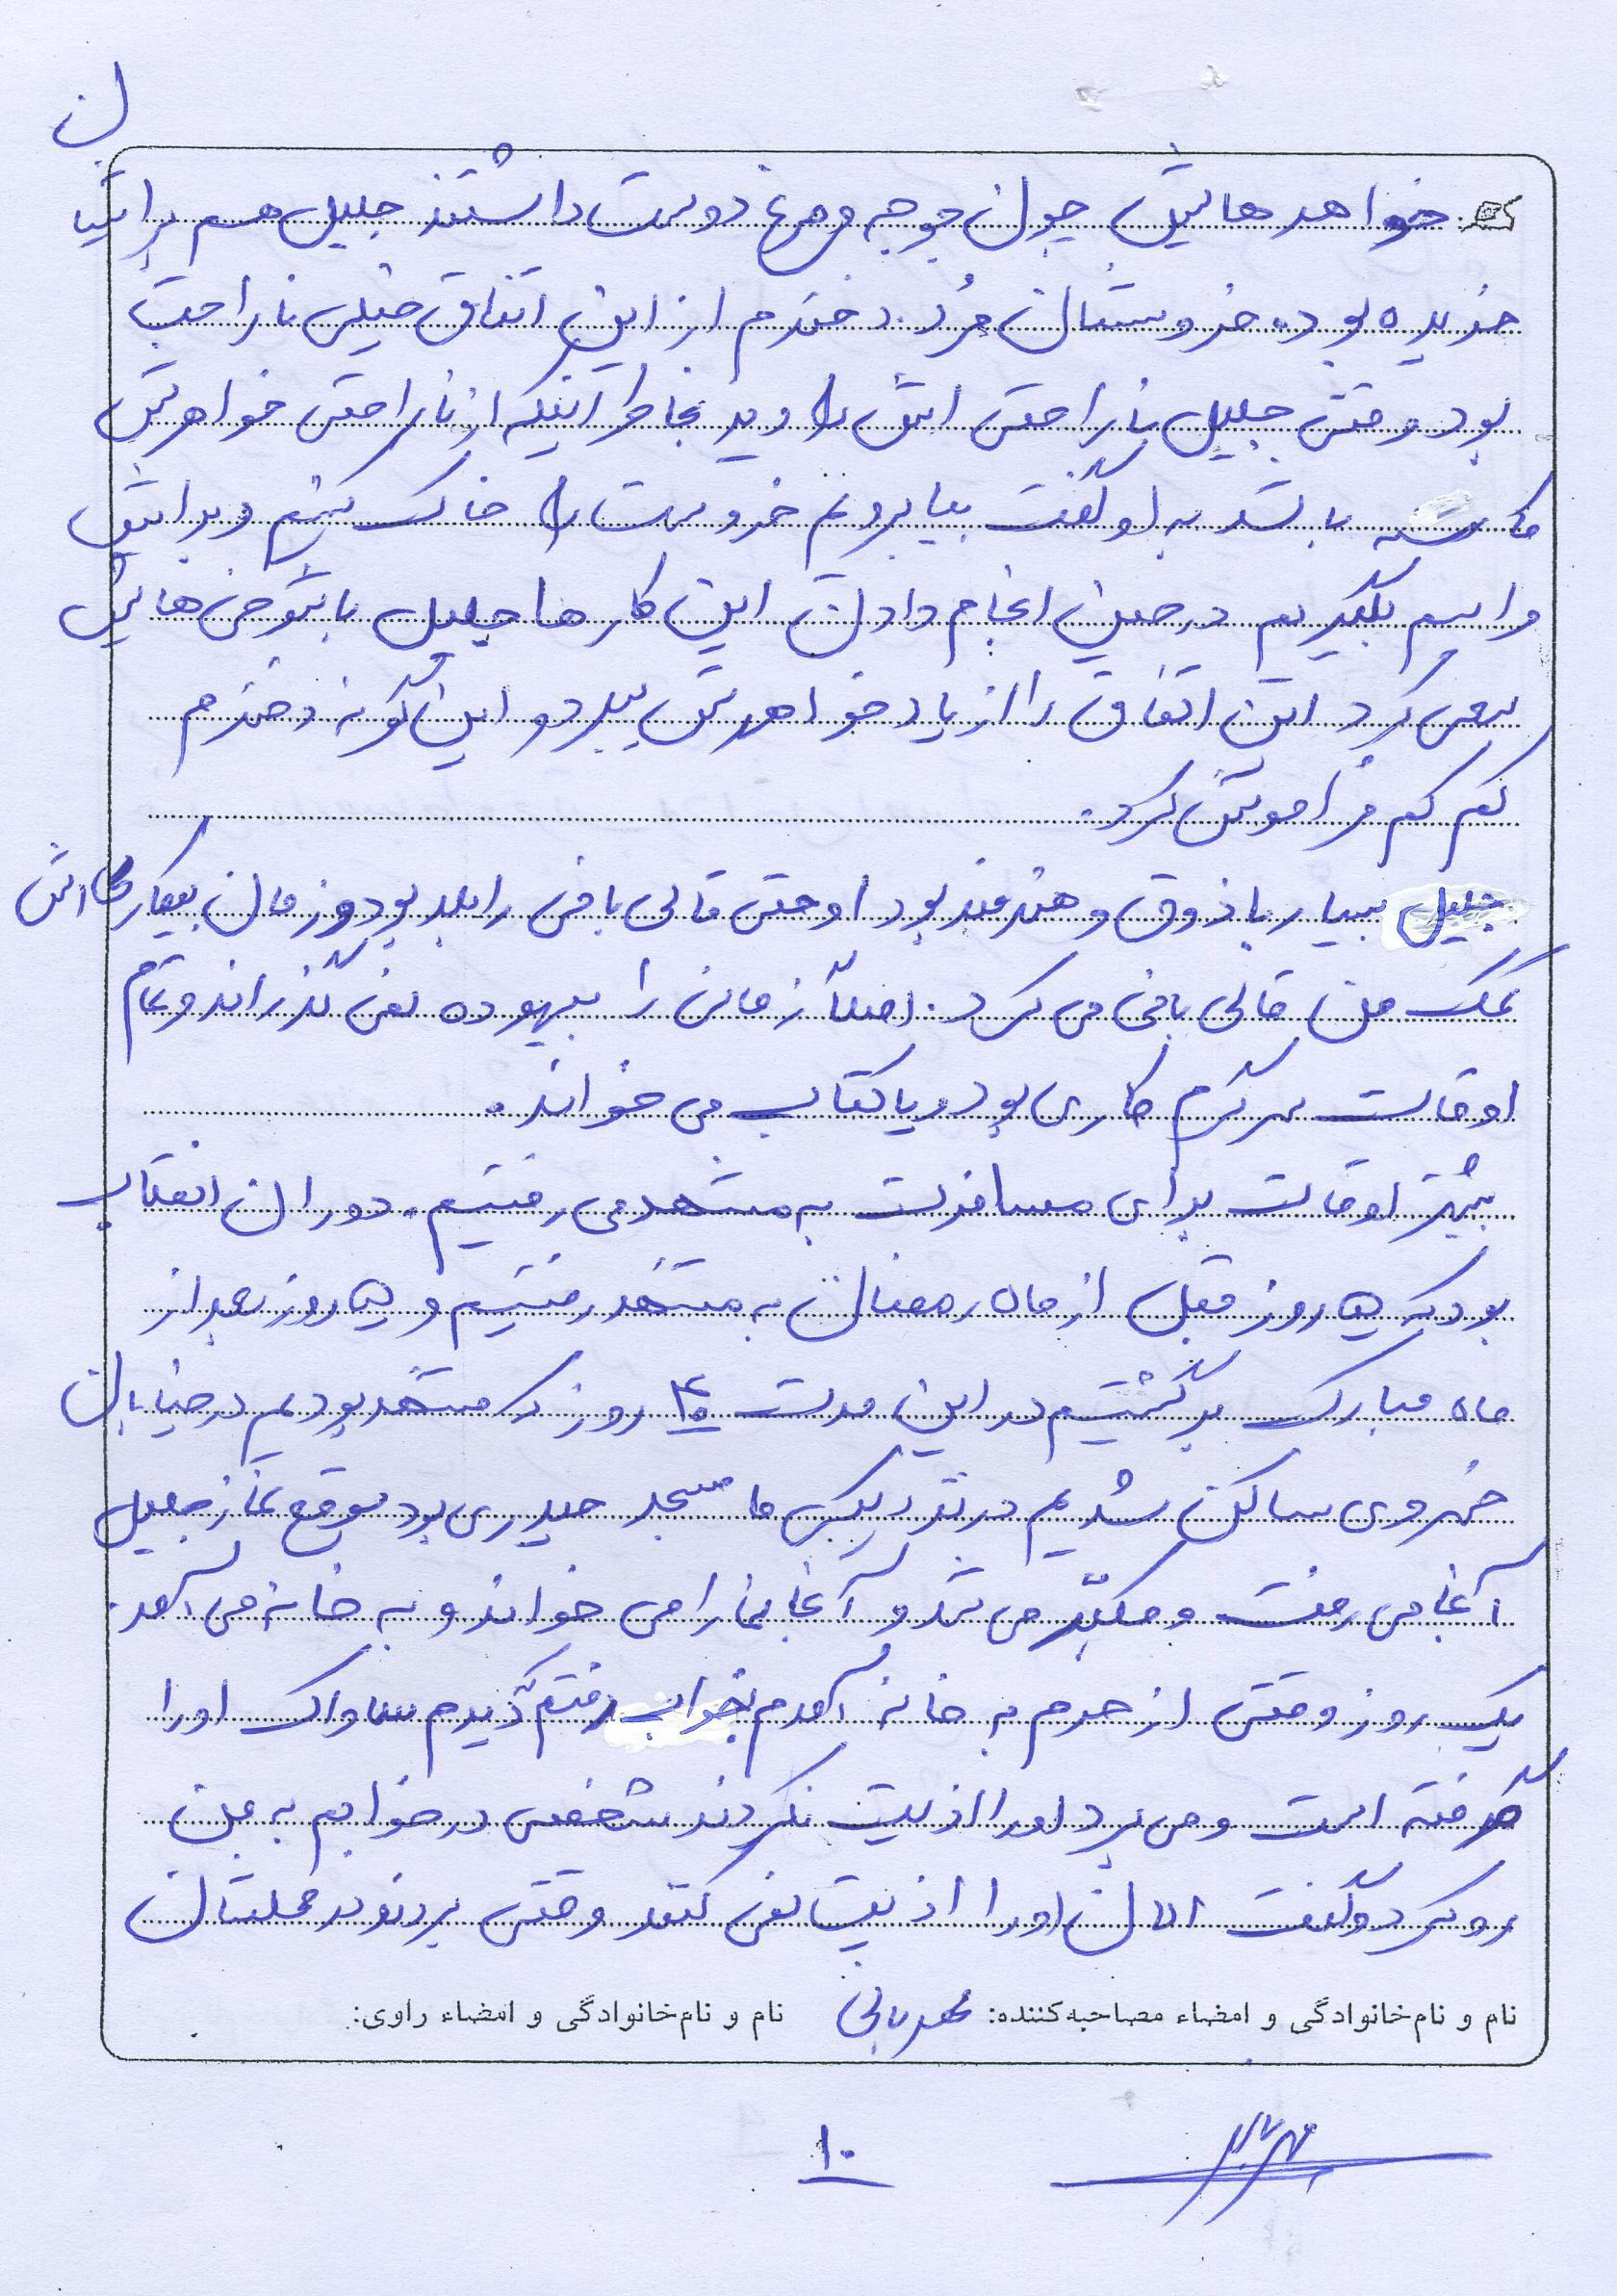 خواهرهایش چون جوجه مرغ دوست داشتند جلیل هم برایشان
خریده بود. خروسشان مُرد. دخترم از این اتفاق خیلی ناراحت
بود وقتی جلیل ناراحتی اش را دید بخاطر اینکه از ناراحتی خواهرش
کاسته باشد به او گفت بیا برویم خروست را خاک کنیم و برایش
مراسم بگیریم در حین انجام دادن این کارها جلیل با شوخی هایش
سعی کرد این اتفاق را از یاد خواهرش ببرد و این گونه دخترم
کم کم فراموش کرد.
جلیل بسیار باذوق و هنرمند بود او حتی قالی بافی را بلد بود و زمان بیکاری اش
کمک من قالی بافی می کرد. اصلاً زمانی را بیهوده نمی گذراند و تمام
اوقات سرگرم کاری بود و یا کتاب می خواند.
بیشتر اوقات برای مسافرت به مشهد می رفتیم. دوران انقلاب
بود که ۵ روز قبل از ماه رمضان به مشهد رفتیم و ۵ روز بعد از
ماه مبارک برگشتیم در این مدت ۴۰ روز که مشهد بودیم در خیابان
خسروی ساکن شدیم در نزدیکی ما مسجد حیدری بود موقع نماز جلیل
آنجا می رفت و مکبّر می شد و آنجا نماز را می خواند و به خانه می آمد.
یک روز وقتی از حرم به خانه آمدم بخواب رفتم دیدم ساواک او را
گرفته است و می برد او را اذیت نکردند شخصی در خوابم به من
رو کرد و گفت الان او را اذیت نمی کنند وقتی بردند در محلشان
نام و نام‌خانوادگی و امضاء مصاحبه‌کننده: مهربانی نام و نام‌خانوادگی و امضاء راوی:
۱۰